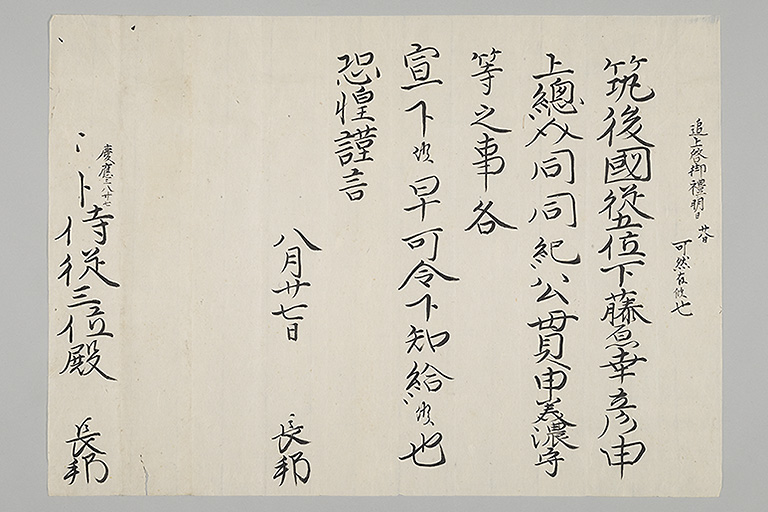 追上啓御禮明日廿八日
可然存候也
筑後國従五位下藤原幸彦申
上總介同同紀公貫申美濃守
等之事各
宣下候早可令下知給候也
恐惶謹言
八月廿七日
長邦
慶應二八廿七
ト侍従三位殿
長邦